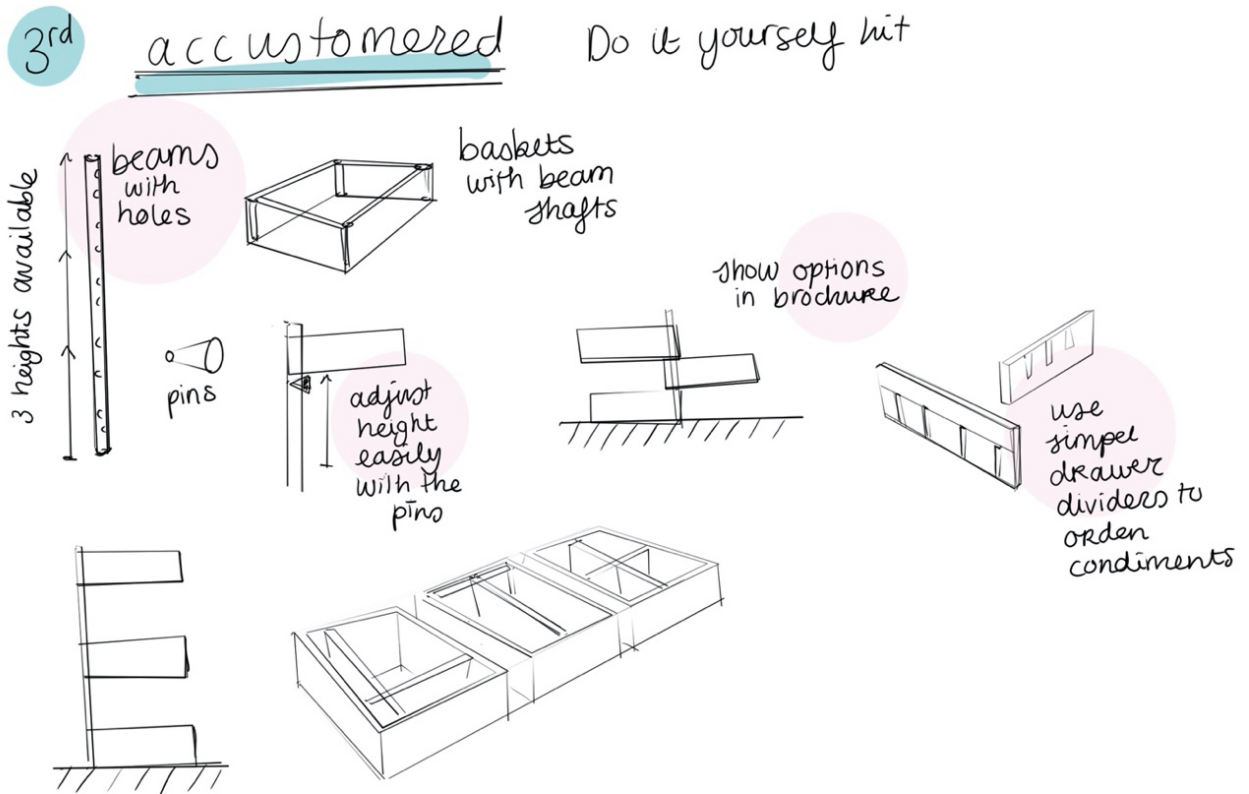 3rd
accustomered
Do it yourself kit
3 heights available
beams
with
holes
baskets
with beam
shafts
pins
adjust
height
easily
with the
pins
show options
in brochure
use
simpel
drawer
dividers to
orden
condiments